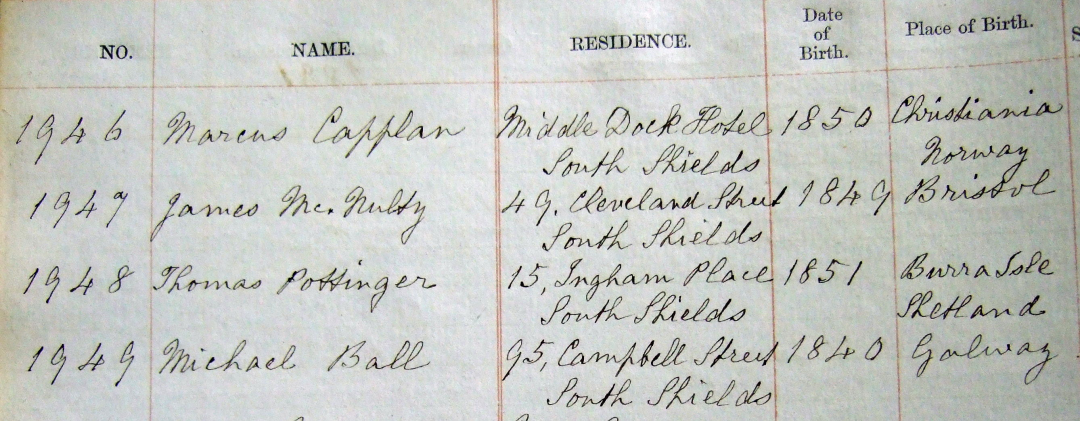 NO. NAME. RESIDENCE. Date of Birth. Place of Birth.
1946 Marcus Capplan Middle Dock Hotel 1850 Christiania
South Shields Norway
1947 James Mc. Nulty 49. Cleveland Street 1849 Bristol
South Shields
1948 Thomas Pottinger 15, Ingham Place 1851 Burra Isle
South Shields Shetland
1949 Michael Ball 95, Campbell Street 1840 Galway
South Shields